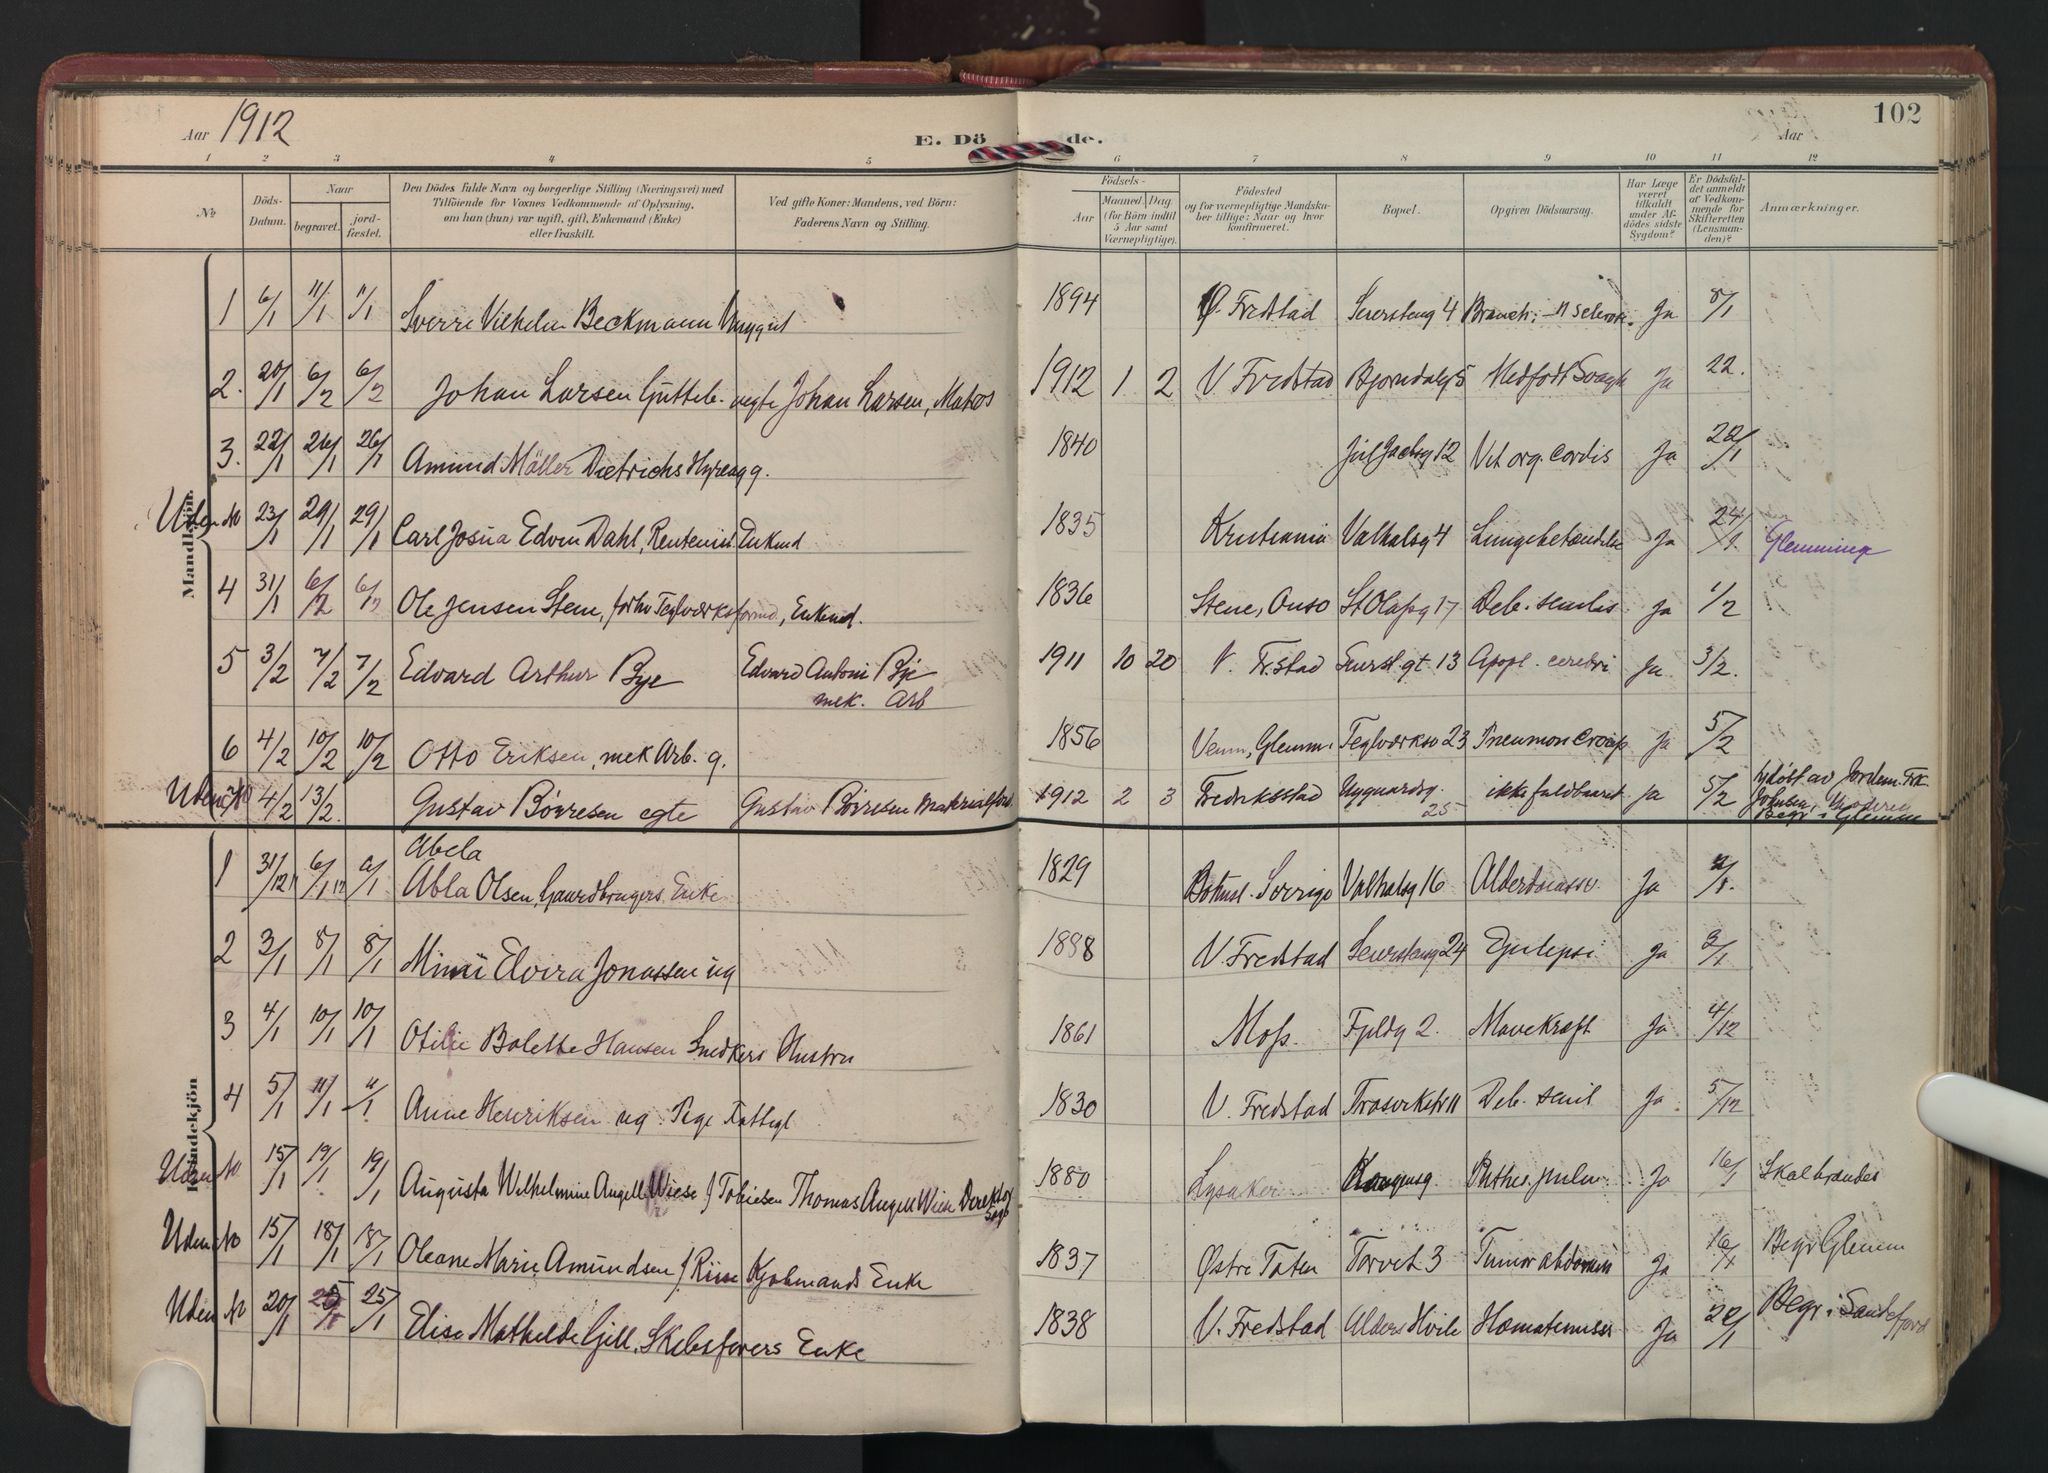 Aar 1912
E. Dö de.
Aar
102
1 2 3 4 5 6 7 8 9 10 11 12
No
Döds-Datum.
Naar
begravet.
jord-fæstet.
Den Dödes fulde Navn og borgerlige Stilling (Næringsvei) med
Tilföiende for Voxnes Vedkommende af Oplysning,
om han (hun) var ugift, gift, Enkemand (Enke)
eller fraskilt.
Ved gifte Koner: Mandens, ved Börn:
Faderens Navn og Stilling.
Födsels-
Aar
Maaned Dag
(for Börn indtil
5 Aar samt
Værnepligtige).
Födested
og for værnepligtige Mandska-
ber tillige: Naar og hvor
konfirmeret.
Bopæl.
Opgiven Dödsaarsag.
Har Læge
været
tilkaldt
under Af-
dödes sidste
Sygdom?
Er Dödsfal-
det anmeldt
af Vedkom-
mende for
Skifteretten
(Lensman-
den)?
Anmærkninger.
Mandkjön
1 6/1 11/1 11/1 Sverre Vilhelm Beckmann Unggut 1894 Ø. Fredstad 4 Ja 8/1
2. 20/1 6/2 6/2 Johan Larsen Gutteb. ægte Johan Larsen, Matros 1912 1 2 V Fredstad Bjorndalg 5 Medfødt Svagh Ja 22.
3. 22/1 26/1 26/1 Amund Möller Dietrichs g. 1840 Jul Jacbsg 12 Vit org. cordis Ja 22/1
Uden No 23/1 29/1 29/1 Carl Josua Edvin Dahl, Rentenist Enkmd 1835 Kristiania Valhalsg 4 Lungebetændelse Ja 24/1. Glemminge
4 31/1 6/2 6/2 Ole Jensen Stene, forhv Teglværksformd., Enkemd. 1836 Stene, Onso St Olafsg 17 Deb. senilis Ja 1/2
5 3/2 7/2 7/2 Edvard Arthur Bye Edvard Antoni Bye
mek. Arb
1911 10 20 V. Fr.stad gt. 13 Apopl. cerebri Ja. 3/2.
6 4/2 10/2 10/2 Otto Eriksen, mek Arb. g. 1856 Glemm. Teglværksv 23 Pneumoni croup Ja 5/2
Uden No 4/2 13/2. Gustav Börresen egte Gustav Börresen Materialforv. 1912 2 3 Fredriksstad Nygaardsg.
25 ikke fuldbaaret Ja 5/2 hjdøbt av Jordem. Frk
Johnsen,
Begr. i Glemm
Kvindekjön
1 31/12 11 6/1 12 6/1 Abela
Abla Olsen, Gaardbrugers Enke 1829 Bohusl. Sverige Valhalsg 16 Alderdomssv. Ja
2 3/1 8/1 8/1 Mimi Elvira Jonassen ug 1888 V. Fredstad 24 Epilepsi Ja 3/1
3 4/1 10/1 10/1 Otilie Bolette Hansen Snedkers Hustru 1861 Moss. 2. Mavekræft Ja 4/12
4 5/1 11/1 11/1 Anne Henriksen ug. Pige Fattigl 1830 V. Fredstad Trosvikstr 11 Deb. senil Ja 5/12
Uden No 15/1 19/1 19/1 Augusta Wilhelmine Angell Wiese f Tobiesen Thomas Angell Wiese Direktør 1880 Lysaker Phthis. pulm. Ja 16/1 Skal brændes
Uden No 15/1 18/1 18/1 Oleane Marie Amundsen f Riise Kjøbmands Enke 1837 Østre Toten Torvet 3 Tumor abdominis Ja 16/1 Begr Glemm
Uden No 20/1 25/1 25/1 Elise Mathilde Gjell, Skibsførers Enke 1838 V. Fredstad Alders Hvile Hæmatemesis Ja 22/1 Begr. i Sandefjord